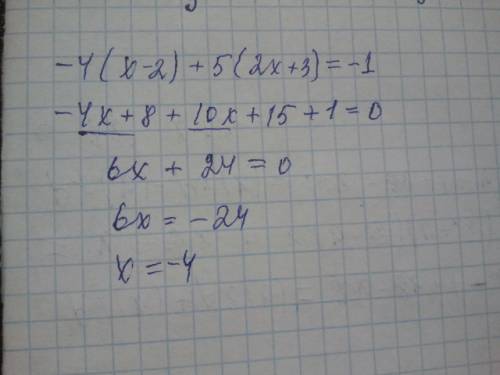 -4(x-2)+5(2x+3)=-1
-4x+8+10x+15+1=0
6x+24=0
6x=-24
x=-4